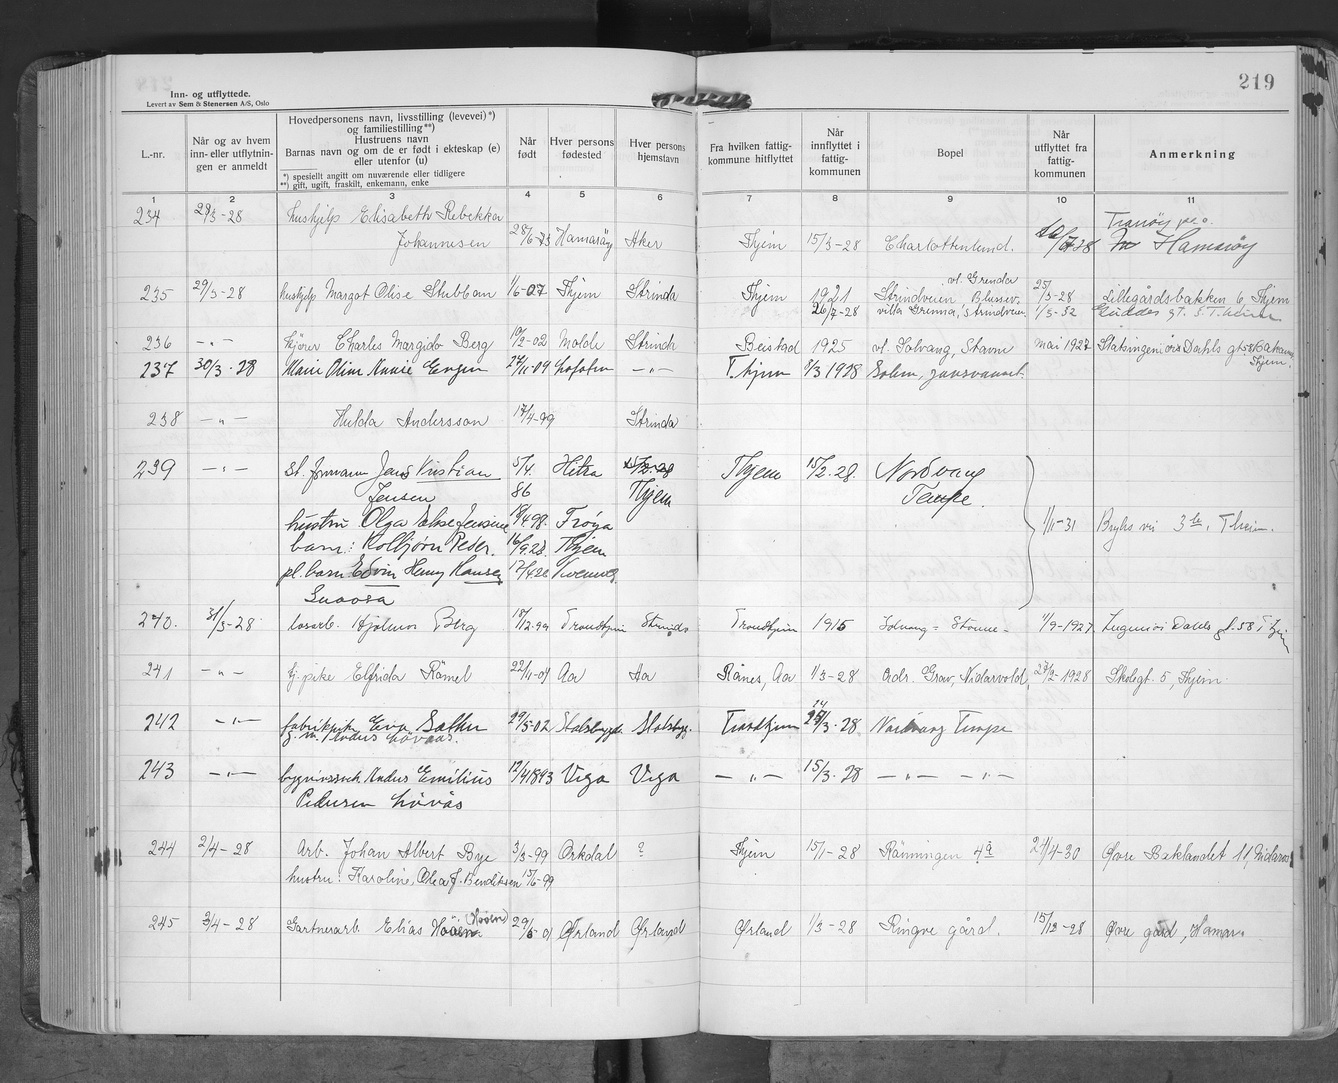 219
Inn- og utflyttede.
Levert av Sem & Stenersen A/S, Oslo
L.-nr.
Når og av hvem inn- eller utflytningen er anmeldt
Hovedpersonens navn, livsstilling (levevei)*) og familiestilling**)
Hustruens navn
Barnas navn og om de er født i ekteskap (e) eller utenfor (u)
*) spesielt angitt om nuværende eller tidligere
**) gift, ugift, fraskilt, enkemann, enke
Når født
Hver persons fødested
Hver persons hjemstavn
Fra hvilken fattigkommune hitflyttet
Når innflyttet i fattigkommunen
Bopel
Når utflyttet fra fattigkommunen
Anmerkning
1 2 3 4 5 6 7 8 9 10 11
234 29/3-28 hushjelp Elisabeth Rebekka Tranøy
Johannesen 28/6-03 Hamarøy Aker Thjem 15/3-28 Charlottenlund. Hamarøy
vl. Grenda 25/
235 29/3-28 hushjelp Margot Olise Stubban 1/6-07 Thjem Strinda Thjem 1921 Strindveien, Blussev. 1/3-28 Lillegårdsbakken 6, Thjem
26/7-28 villa Grenna, Strindveien 1/5-32
236 -"- Charles Margido Berg 19/2-02 Molde Strinda Beistad 1925 vl. Solvang, Stavne mai 1927 Statsingeniør Dahls gt.
Thjem.
237 30/3-28 Marie Oline Enger 24/11-09 Lofoten -"- T.hjem 1/3 1928 Solem,
238 -"- Hulda Andersson 17/4-99 Strinda
239 -"- st. formann Jens Kristian 5/4. Hitra 15/2-28 Thjem 15/2-28. Nordvang
Jensen 86 Thjem Tempe.
hustru Olga Elise Jensine 18/4 98. Frøya 1/11-31 3 T.heim.
barn: Kolbjørn Peder. 16/9.23. Thjem
pl. barn Edvin Henry Hansen 17/4.26
Snaasa
240. 31/3-28 Hjalmar Berg 18/12-99 Trondhjem Strinda Trondhjem 1915 Solvang - Stavne - 1/9-1927 Ingeniør Dahls g. 58 T.hjem
241 -"- tj.pike Elfrida Rånel 22/11-07 Aa Aa Rånes, Aa 1/3-28 Adr. Grav, Nidarvold, 27/2-1928 Skolegt. 5, Thjem.
14
242 -"- fabrikpike Eva 29/5-02 Stadsbygd Stadsbyg. Trondhjem 25/3-28 Nordvang Tempe
g.m. Anders Løvaas.
243 -"- Anders Emilius 12/4 1893 Viga Viga -"- 15/3-28 -"- -"-
Pedersen Løvås
244 2/4-28 Arb. Johan Albert Bye 3/3-99 Orkdal ? Thjem 15/1-28 Rønningen 4a 24/4-30 Øvre Baklandet 11, Nidaros
hustru: Karoline, Olea f. Bendiksen 15/6-99
(Høøen)
245 3/4-28 Gartnerarb Elias 29/5-01 Ørland Ørland Ørland 1/3-28 Ringve gård. 15/12-28 Øvre gård, Hamar.